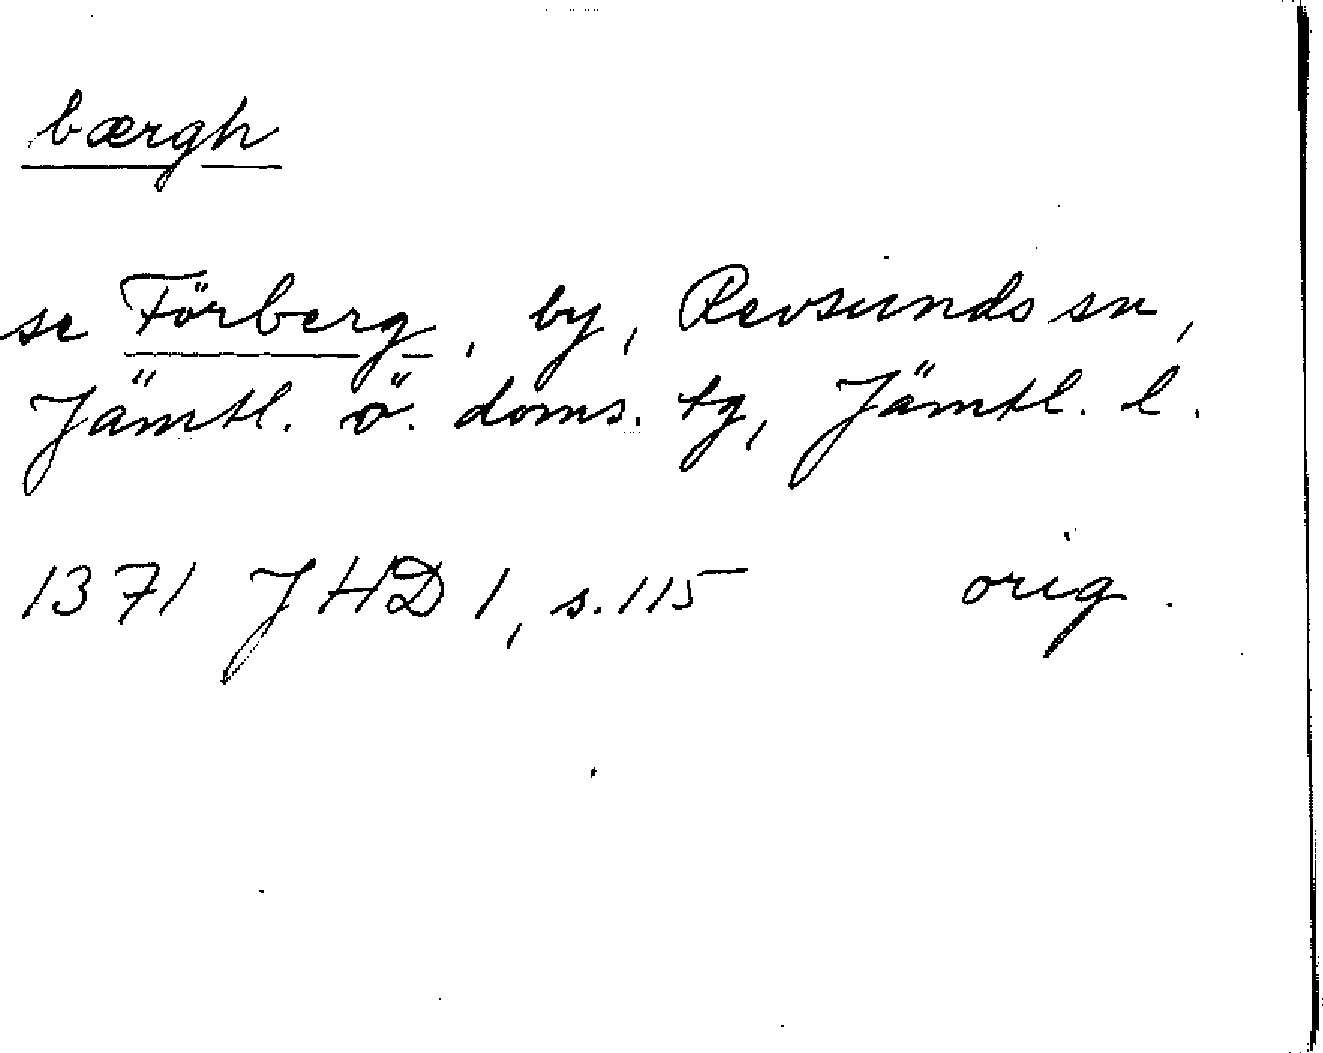 bærgh
se Förberg, by, Revsunds sn,
Jämtl. ö. doms. tg, Jämtl. l.
1371 JHD 1, s. 115 orig.